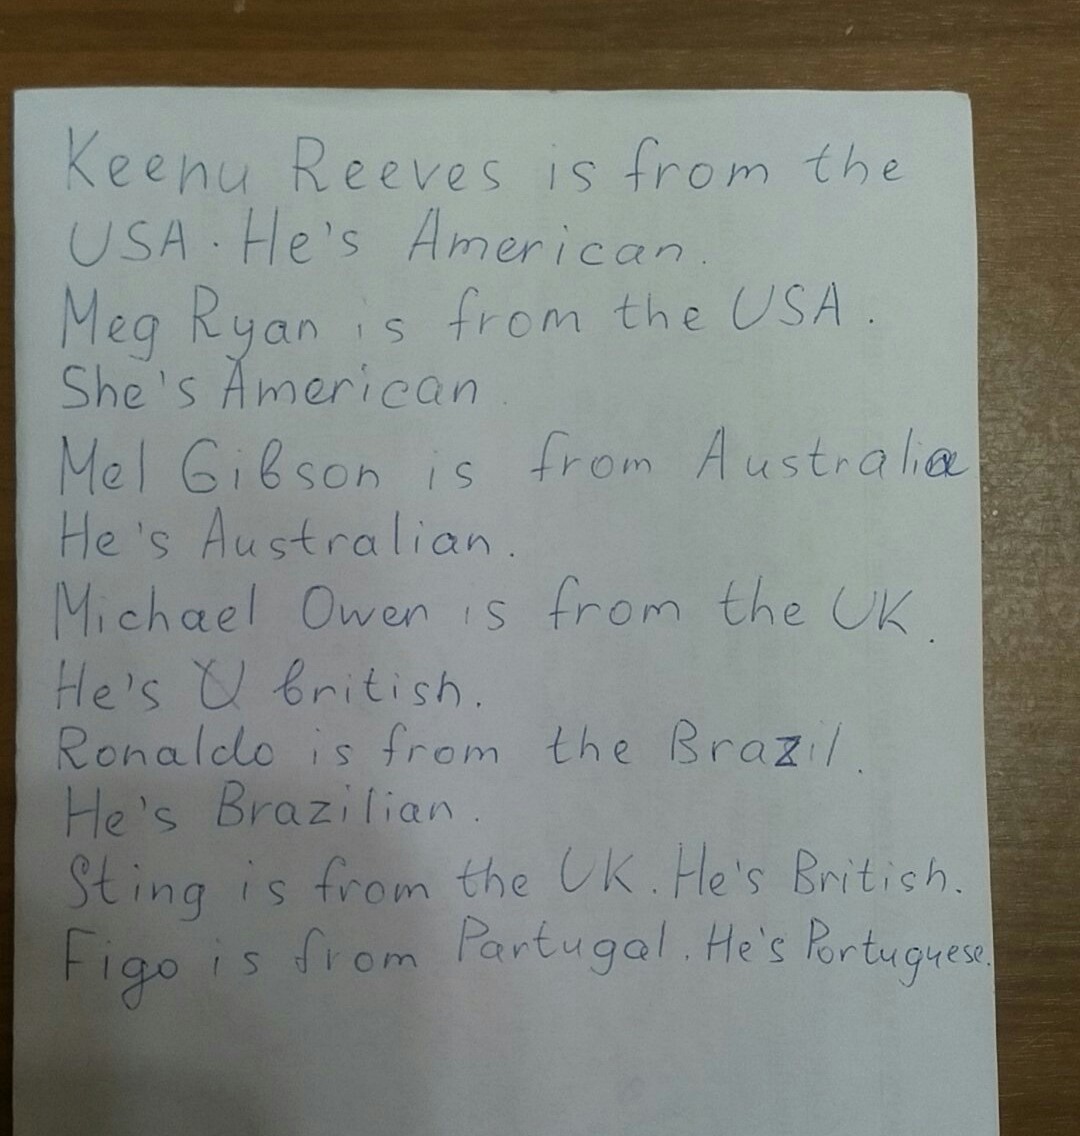 Keenu Reeves is from the
USA. He's American.
Meg Ryan is from the USA.
She's American.
Mel Gibson is from Australia
He's Australian.
Michael Owen is from the UK.
He's british.
Ronaldo is from the Brazil.
He's Brazilian.
Sting is from the UK. He's British.
Figo is from Partugal. He's Portuguese.